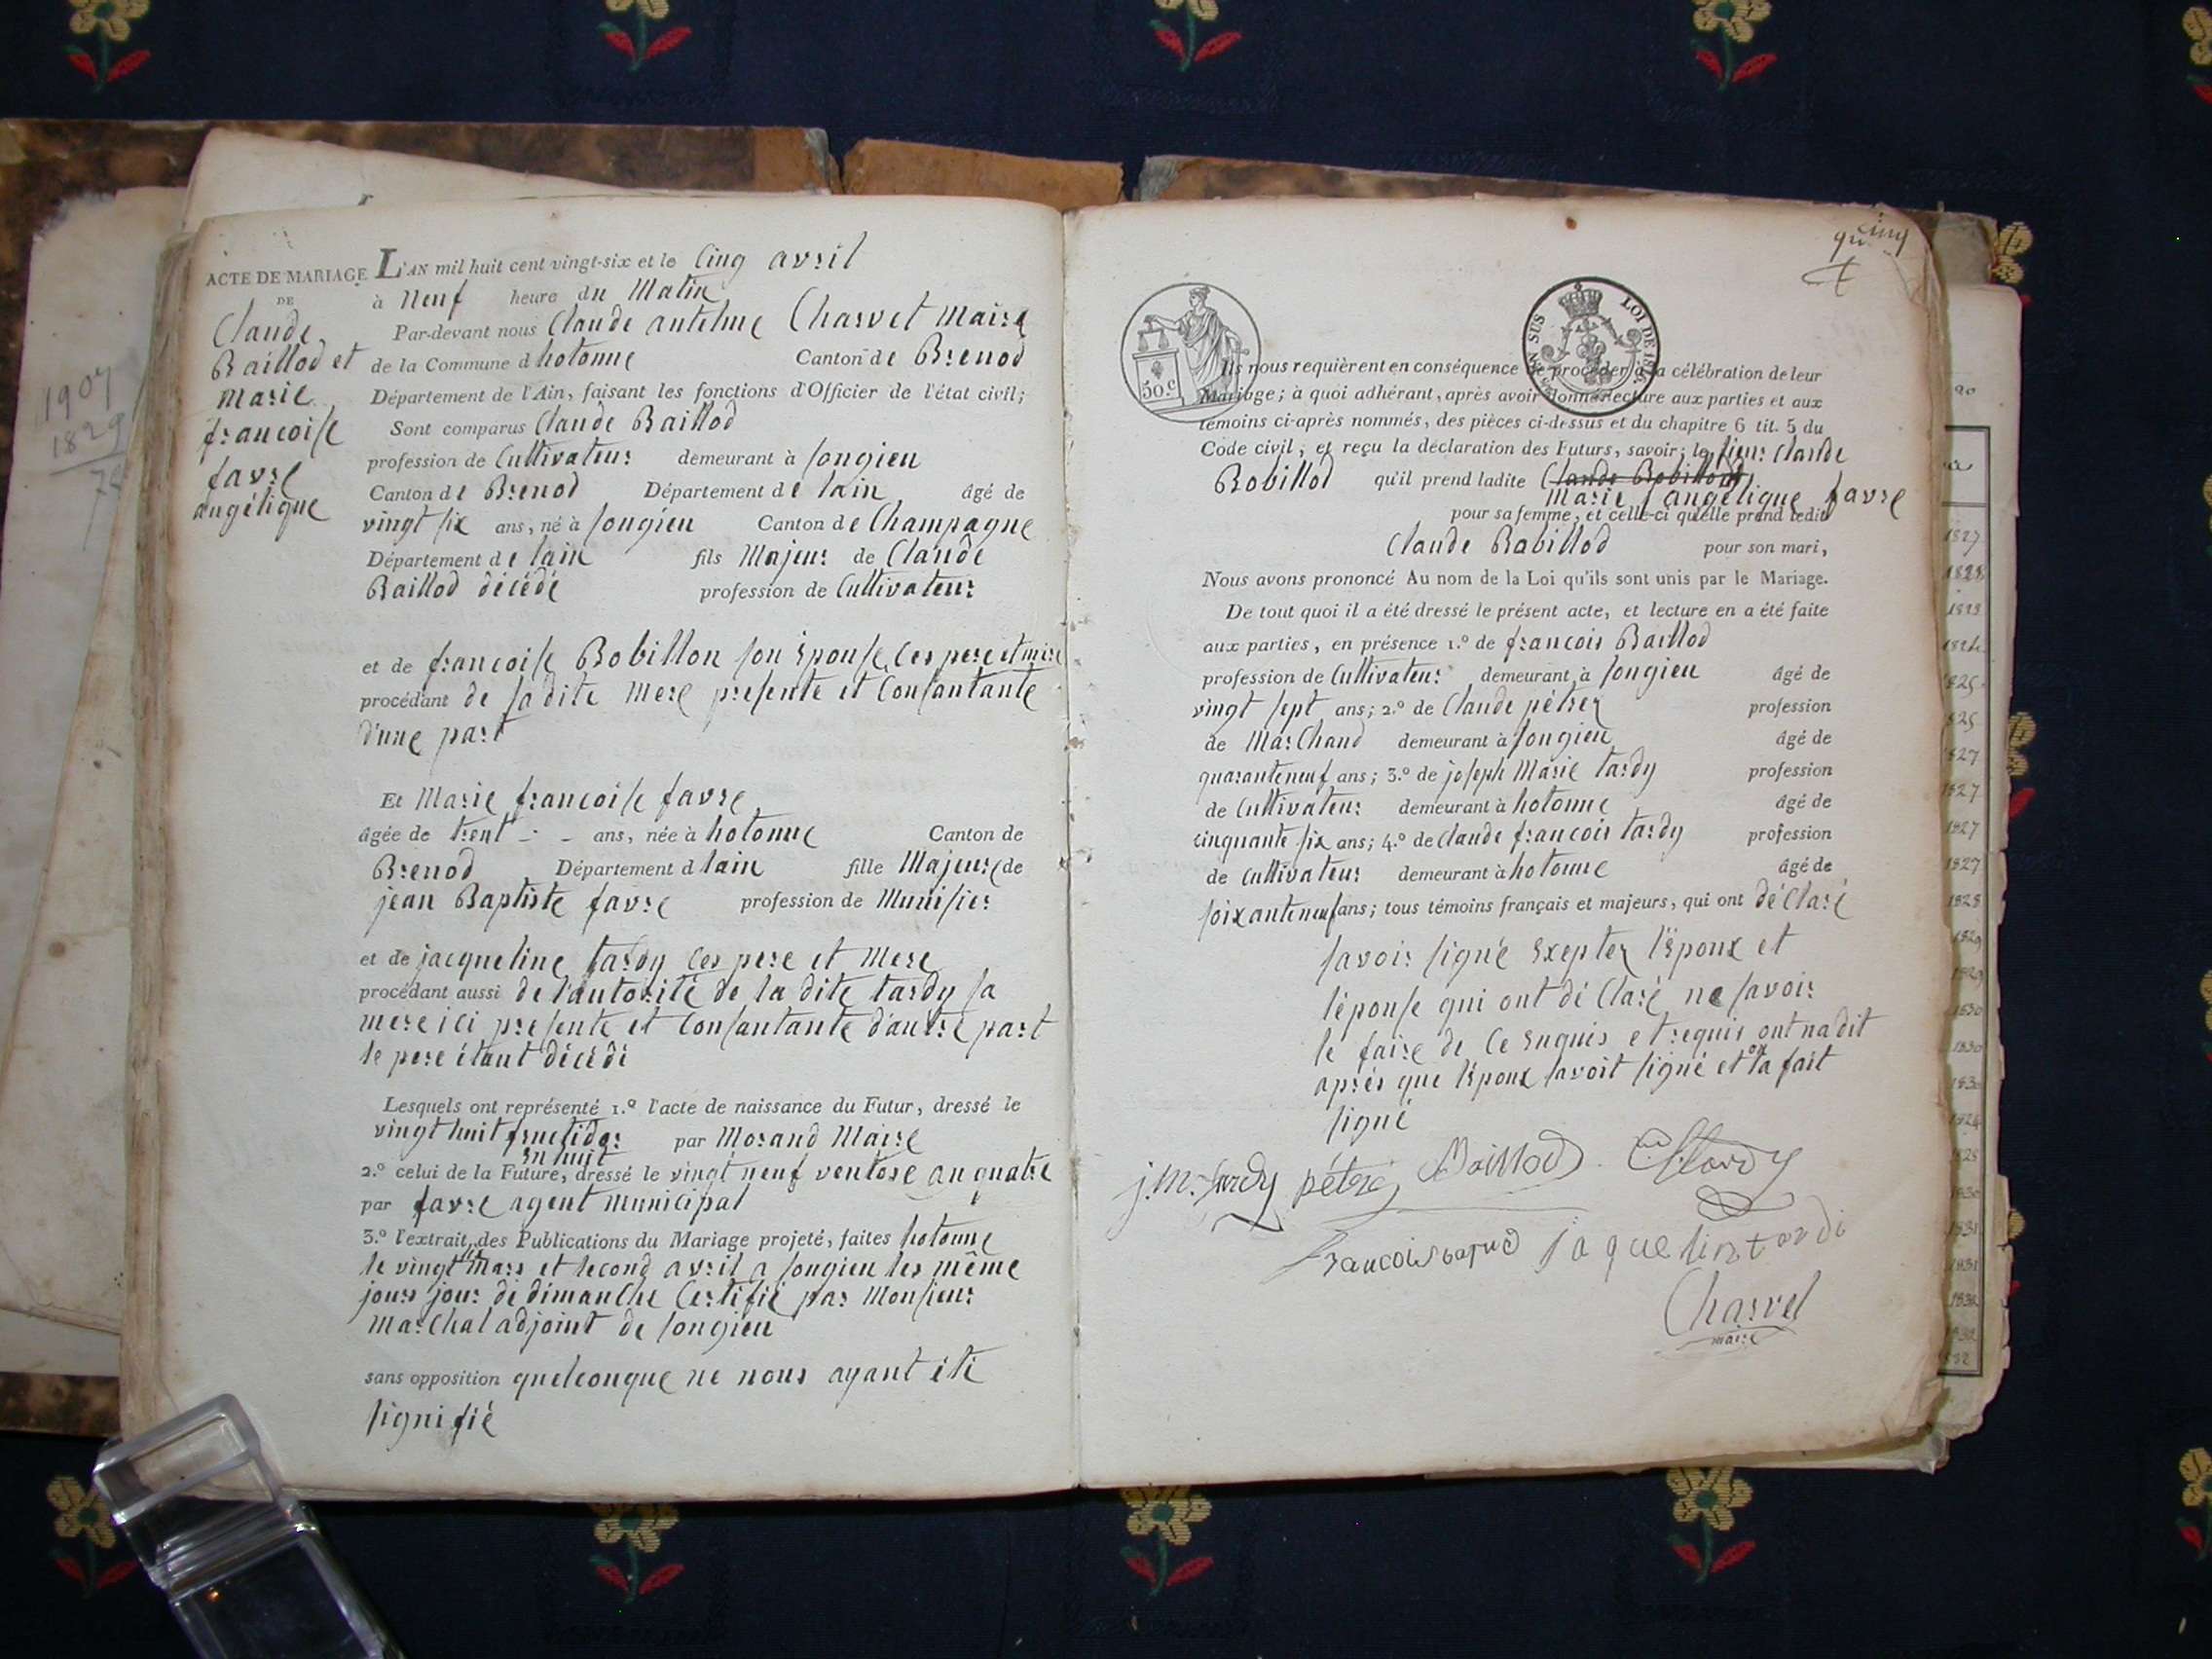 1907
1829
78
ACTE DE MARIAGE
DE
Claude
Baillod et
Marie
francoise
favre
angélique
L'AN mil huit cent vingt-six et le Cinq avril
à Neuf heure du Matin
Par-devant nous Claude antelme Charvet Maire
de la Commune d hotonne Canton de Brenod
Département de l'Ain, faisant les fonctions d'Officier de l'état civil;
Sont comparus Claude Baillod
profession de Cultivateur demeurant à songieu
Canton de Brenod Département de lain âgé de
vingt six ans, né à songieu Canton de Champagne
Département de lain fils Majeur de Claude
Baillod décédé profession de Cultivateur
et de francoise Bobillon son Epouse Ces pere et mere
procédant de sa dite Mere presente et Consantante
d'une part
Et Marie francoise favre
âgée de trent ans, née à hotonne Canton de
Brenod Département d lain fille Majeure de
jean Baptiste favre profession de Munisier
et de jacqueline tardy Ces pere et Mere
procédant aussi de l'autorité de la dite tardy sa
mere ici presente et Consantante d'autre part
le pere étant décédé
Lesquels ont représenté 1.º l'acte de naissance du Futur, dressé le
vingt huit fructidor par Morand Maire
an huit
2.º celui de la Future, dressé le vingt neuf ventose an quatre
par favre agent municipal
3.º l'extrait des Publications du Mariage projeté, faites hotonne
le vingt six Mars et second avril a songieu les même
jours jour de dimanche Certifié par Monsieur
Marchal adjoint de songieu
sans opposition quelconque ne nous ayant été
signifié
cinq
50.c
SUS LOI DE 1816.
Ils nous requièrent en conséquence de procéder à la célébration de leur
Mariage; à quoi adhérant, après avoir donné lecture aux parties et aux
témoins ci-après nommés, des pièces ci-dessus et du chapitre 6 tit. 5 du
Code civil, et reçu la déclaration des Futurs, savoir: le sieur Claude
Bobillod qu'il prend ladite Claude Bobillod
Marie f angélique favre
pour sa femme, et celle-ci qu'elle prend ledit
Claude Babillod pour son mari,
Nous avons prononcé Au nom de la Loi qu'ils sont unis par le Mariage.
De tout quoi il a été dressé le présent acte, et lecture en a été faite
aux parties, en présence 1.º de francois Baillod
profession de Cultivateur demeurant à songieu âgé de
vingt sept ans; 2.º de Claude pétrez profession
de Marchand demeurant à songieu âgé de
quaranteneuf ans; 3.º de joseph Marie tardy profession
de Cultivateur demeurant à hotonne âgé de
cinquante six ans; 4.º de Claude francois tardy profession
de Cultivateur demeurant à hotonne âgé de
soixanteneuf ans; tous témoins français et majeurs, qui ont déClaré
savoir signé Exepter l'Epoux et
léponse qui ont dé Claré ne savoir
le faire de Ce Enquis et requis ont na dit
aprés que l'Epoux savoit signé et on la fait
signé
j.m. tardy pétrez Baillod C f tardy
jaquelin tardi
Charvet
maire
1827
1828
1830
1831